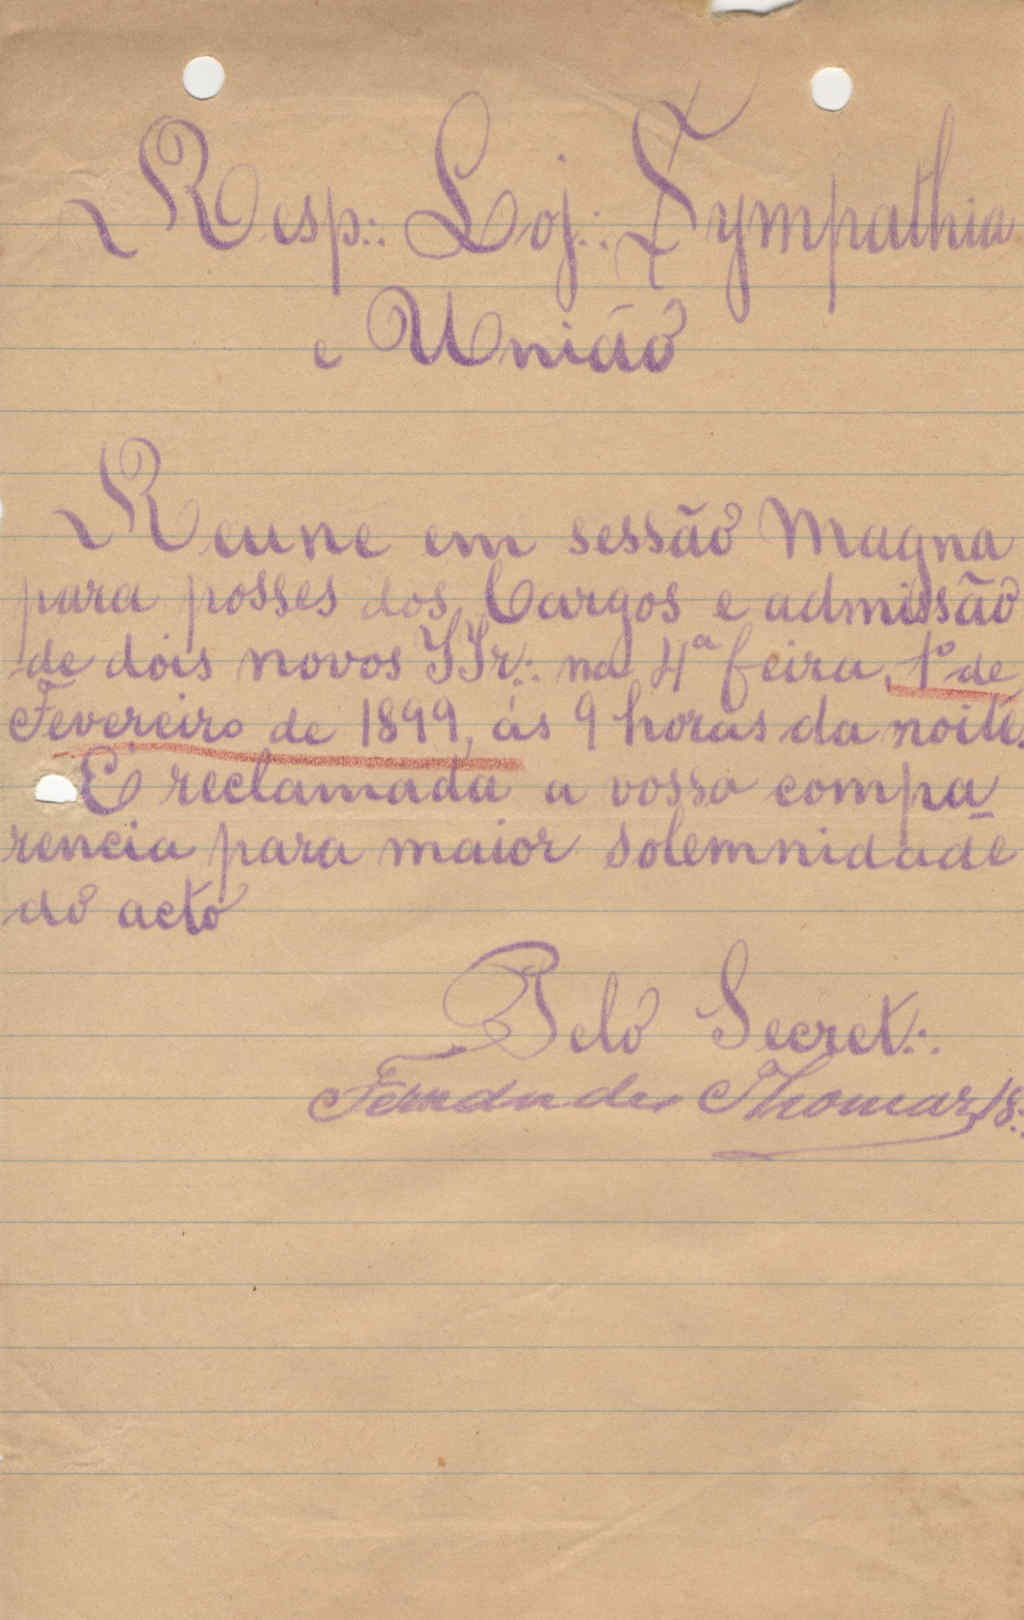 Resp∴ Loj∴ Sympathia
e União
Reune em sessão Magna
para posses dos Cargos e admissão
de dois novos IIr∴ na 4ª feira, 1º de
Fevereiro de 1899, ás 9 horas da noite.
É reclamada a vossa compa
rencia para maior solemnidade
do acto
Pelo Secret∴
Fernandes Thomaz 18∴